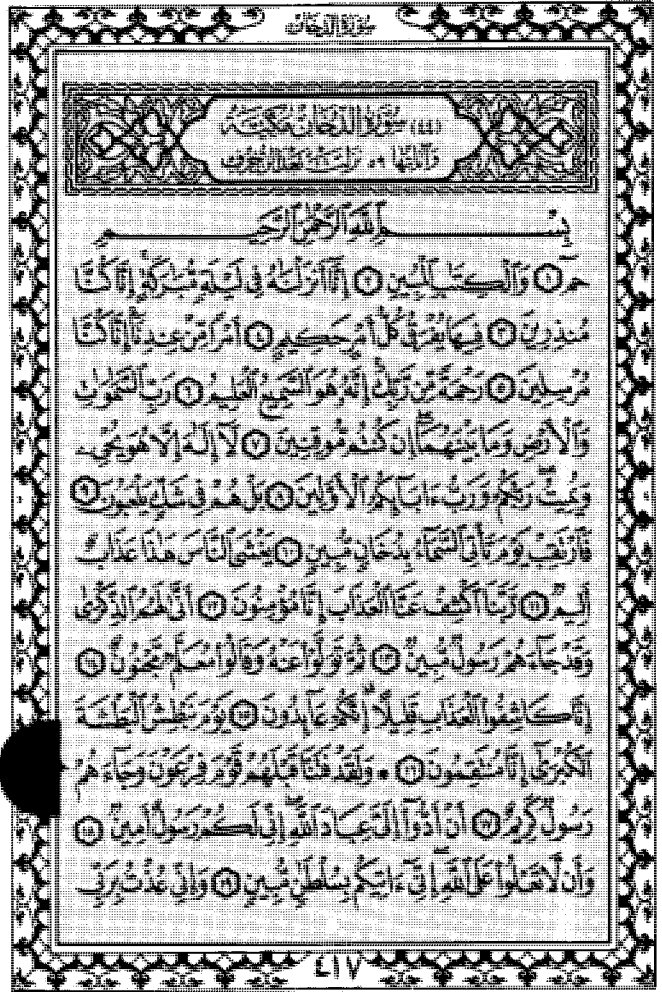 سورة الدخان
(٤٤) سُورَةُ الدُّخَانِ مَكِّيَّة
وَآيَاتُهَا ٥٩ نَزَلَتْ بَعْدَ الزُّخْرُفِ
بِسْمِ ٱللَّهِ ٱلرَّحْمَٰنِ ٱلرَّحِيمِ
حمٓ ١ وَٱلْكِتَٰبِ ٱلْمُبِينِ ٢ إِنَّآ أَنزَلْنَٰهُ فِى لَيْلَةٍ مُّبَٰرَكَةٍ إِنَّا كُنَّا
مُنذِرِينَ ٣ فِيهَا يُفْرَقُ كُلُّ أَمْرٍ حَكِيمٍ ٤ أَمْرًا مِّنْ عِندِنَآ إِنَّا كُنَّا
مُرْسِلِينَ ٥ رَحْمَةً مِّن رَّبِّكَ إِنَّهُۥ هُوَ ٱلسَّمِيعُ ٱلْعَلِيمُ ٦ رَبِّ ٱلسَّمَٰوَٰتِ
وَٱلْأَرْضِ وَمَا بَيْنَهُمَآ إِن كُنتُم مُّوقِنِينَ ٧ لَآ إِلَٰهَ إِلَّا هُوَ يُحْىِۦ
وَيُمِيتُ رَبُّكُمْ وَرَبُّ ءَابَآئِكُمُ ٱلْأَوَّلِينَ ٨ بَلْ هُمْ فِى شَكٍّ يَلْعَبُونَ ٩
فَٱرْتَقِبْ يَوْمَ تَأْتِى ٱلسَّمَآءُ بِدُخَانٍ مُّبِينٍ ١٠ يَغْشَى ٱلنَّاسَ هَٰذَا عَذَابٌ
أَلِيمٌ ١١ رَّبَّنَا ٱكْشِفْ عَنَّا ٱلْعَذَابَ إِنَّا مُؤْمِنُونَ ١٢ أَنَّىٰ لَهُمُ ٱلذِّكْرَىٰ
وَقَدْ جَآءَهُمْ رَسُولٌ مُّبِينٌ ١٣ ثُمَّ تَوَلَّوْا۟ عَنْهُ وَقَالُوا۟ مُعَلَّمٌ مَّجْنُونٌ ١٤
إِنَّا كَاشِفُوا۟ ٱلْعَذَابِ قَلِيلًا إِنَّكُمْ عَآئِدُونَ ١٥ يَوْمَ نَبْطِشُ ٱلْبَطْشَةَ
ٱلْكُبْرَىٰٓ إِنَّا مُنتَقِمُونَ ١٦ * وَلَقَدْ فَتَنَّا قَبْلَهُمْ قَوْمَ فِرْعَوْنَ وَجَآءَهُمْ
رَسُولٌ كَرِيمٌ ١٧ أَنْ أَدُّوٓا۟ إِلَىَّ عِبَادَ ٱللَّهِ إِنِّى لَكُمْ رَسُولٌ أَمِينٌ ١٨
وَأَن لَّا تَعْلُوا۟ عَلَى ٱللَّهِ إِنِّىٓ ءَاتِيكُم بِسُلْطَٰنٍ مُّبِينٍ ١٩ وَإِنِّى عُذْتُ بِرَبِّى
٤١٧